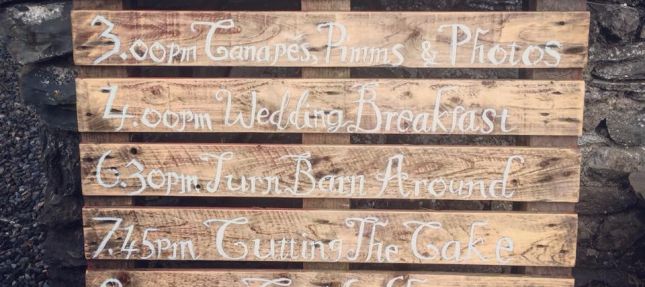 3.00pm Canapés, Pimms & Photos
4.00pm Wedding Breakfast
6.30pm Turn Barn Around
7.45pm Cutting The Cake